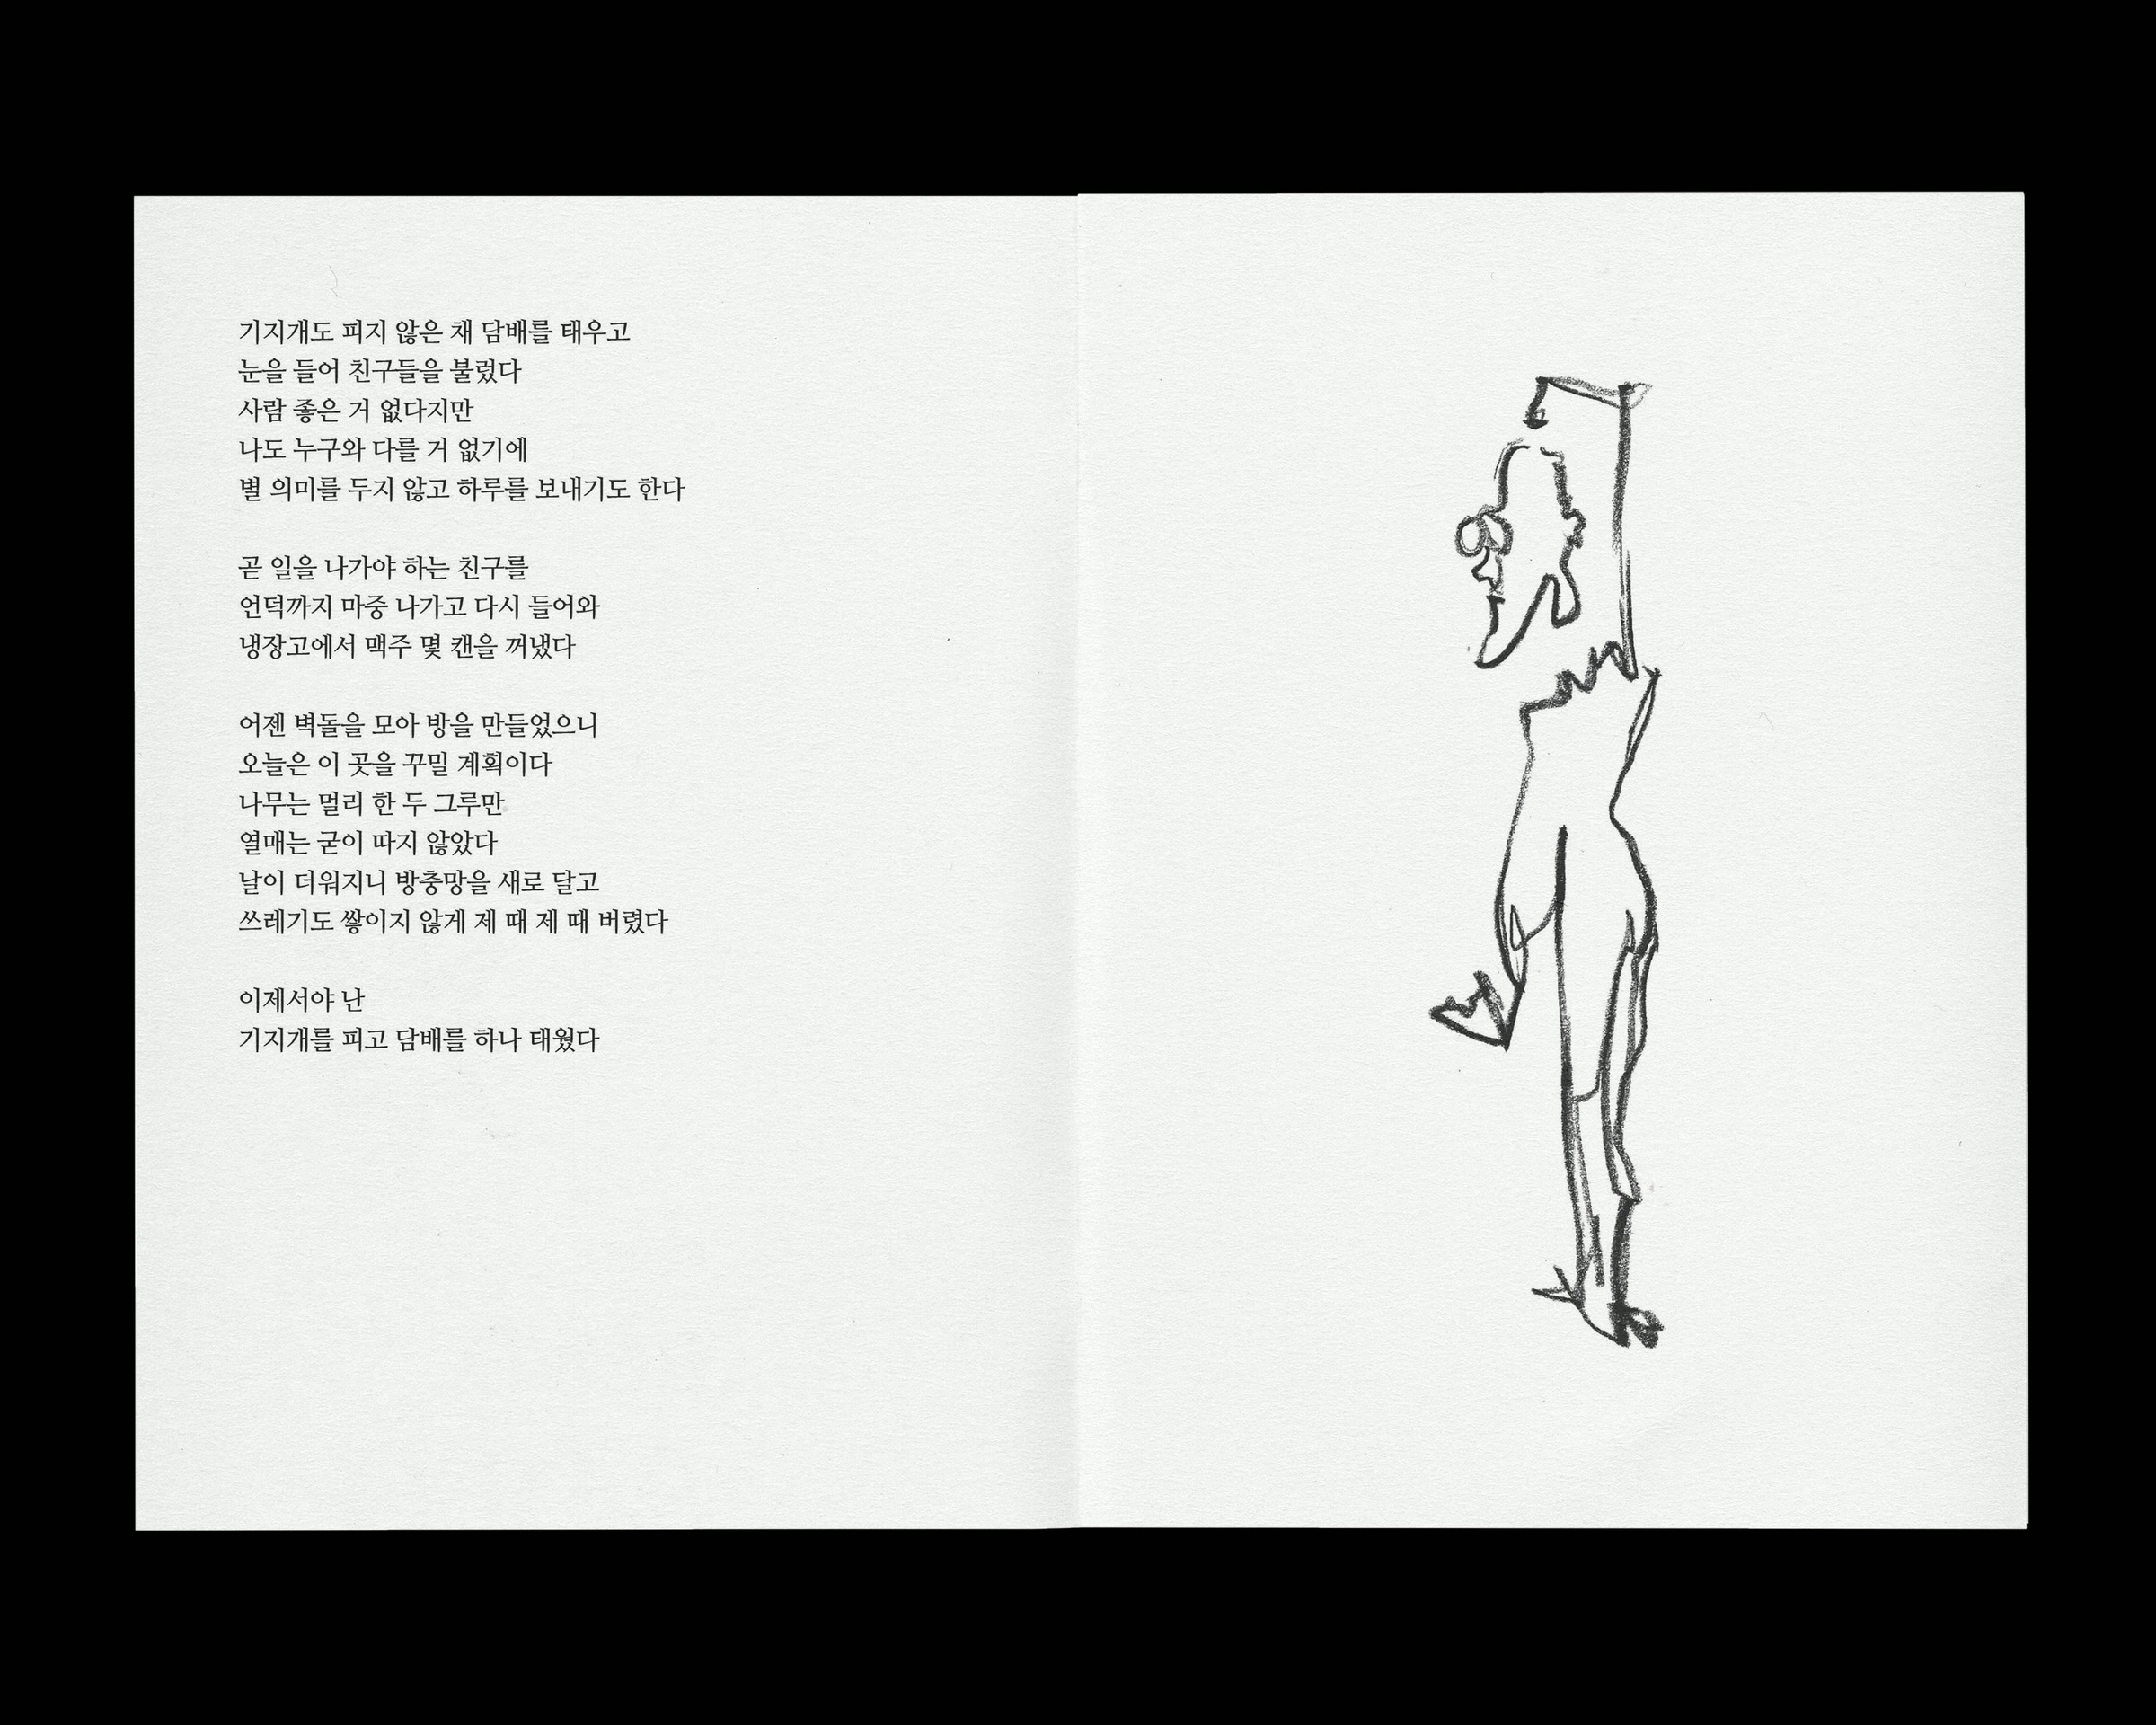 기지개도 피지 않은 채 담배를 태우고
눈을 들어 친구들을 불렀다
사람 좋은 거 없다지만
나도 누구와 다를 거 없기에
별 의미를 두지 않고 하루를 보내기도 한다
곧 일을 나가야 하는 친구를
언덕까지 마중 나가고 다시 들어와
냉장고에서 맥주 몇 캔을 꺼냈다
어젠 벽돌을 모아 방을 만들었으니
오늘은 이 곳을 꾸밀 계획이다
나무는 멀리 한 두 그루만
열매는 굳이 따지 않았다
날이 더워지니 방충망을 새로 달고
쓰레기도 쌓이지 않게 제 때 제 때 버렸다
이제서야 난
기지개를 피고 담배를 하나 태웠다